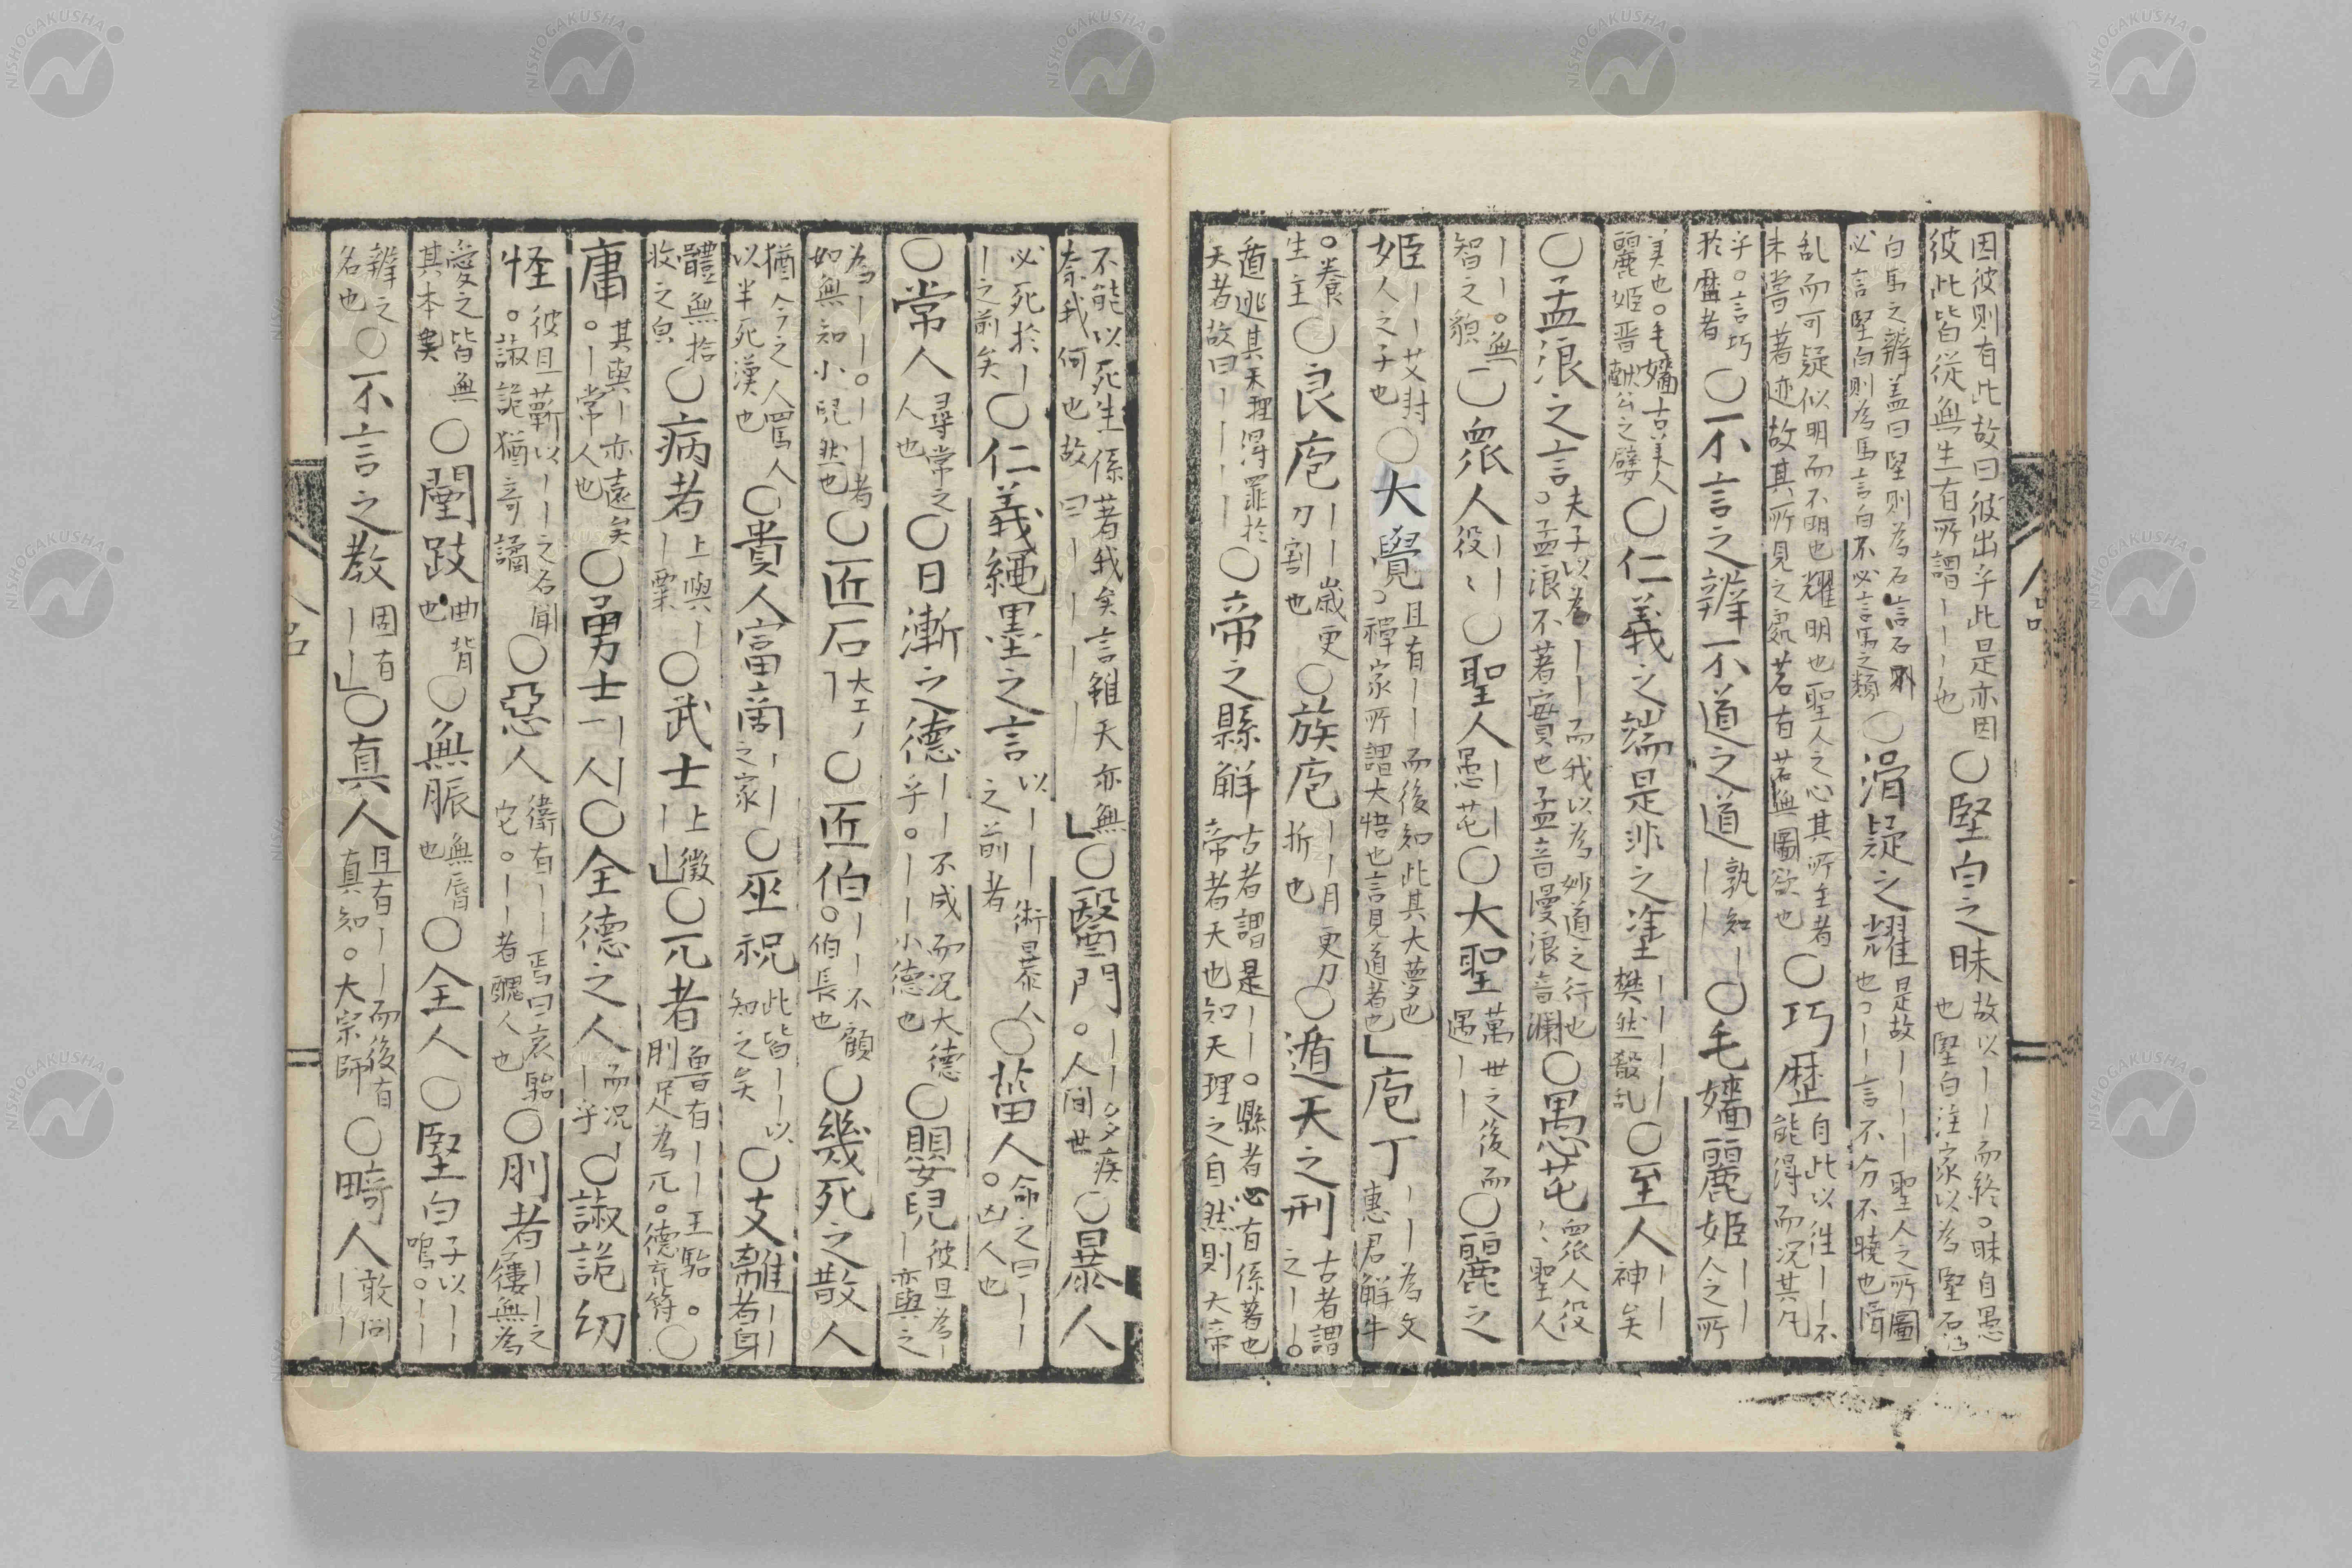 因彼則有此故曰彼出乎此是亦因
彼此皆從無生有所謂丨丨丨也
〇堅白之昧
故以丨丨而終。昧自愚
也堅白注家以為堅石
白馬之辨蓋曰堅則為石言石則
必言堅白則為馬言白不必言馬之類
〇滑疑之耀
是故丨丨丨丨聖人之所圖
也〇丨丨言不分不曉也滑
乱而可疑似明而不明也耀明也聖人之心其所主者
未嘗著迹故其所見之處若有若無圖欲也
〇巧歷
自此以往丨丨不
能得而況其凡
乎。言巧
於曆者
〇不言之辨不道之道
孰知丨
丨丨
〇毛嬙麗姬
丨丨
人之所
美也。毛嬙古美人
麗姬晋献公之嬖
〇仁義之端是非之塗
丨丨丨丨
樊然殽乱
〇至人
丨丨
神矣
〇孟浪之言
夫子以為丨丨而我以為妙道之行也
。孟浪不著實也孟音漫浪音瀾
〇愚芚
衆人役
〻聖人
丨丨。無
智之貌
〇衆人
丨丨
役〻
〇聖人
丨丨
愚芚
〇大聖
萬世之後而
遇丨丨
〇麗之
姬
丨丨艾封
人之子也
〇大覺
且有丨丨而後知此其大夢也
。禪家所謂大悟也言見道者也
」庖丁
丨丨為文
惠君解牛
。養
生主
〇良庖
丨丨歲更
刀割也
〇族庖
丨丨月更刀
折也
〇遁天之刑
古者謂
之丨丨。
遁逃其天理得罪於
天者故曰丨丨丨丨
〇帝之縣解
古者謂是丨丨。縣者心有係著也
帝者天也知天理之自然則大帝
不能以死生係著我矣言雖天亦無
奈我何也故曰丨丨丨丨
」〇醫門
丨丨。多疾
。人間世
〇暴人
必死於丨
丨之前矣
〇仁義繩墨之言
以丨丨術暴人
之前者
〇菑人
命之曰丨丨
。凶人也
〇常人
尋常之
人也
〇日漸之德
丨丨不成而況大德
乎。丨丨小德也
〇嬰兒
彼且為丨
丨亦與之
為丨丨。丨丨者
如無知小兒然也
〇匠石
大工
〇匠伯
丨丨不顧
。伯長也
〇幾死之散人
猶今之人罵人
以半死漢也
〇貴人富商
丨丨
之家
〇巫祝
此皆丨丨以
知之矣
〇支離
丨丨
者身
體無拾
收之皃
〇病者
上與丨
丨粟
〇武士
上徵
丨
」〇兀者
魯有丨丨王駘。
刖足為兀。德充符
〇
庸
其與丨亦遠矣
。丨常人也
〇勇士
丨
一人
〇全德之人
而況丨
丨乎
〇諔詭幻
怪
彼且蘄以丨丨之名聞
。諔詭猶奇譎
〇惡人
衛有丨丨焉曰哀駘
它。丨丨者醜人也
〇刖者
丨丨之
屨無為
愛之皆無
其本矣
〇闉跂
曲背
也
〇無脤
無脣
也
〇全人
〇堅白
子以丨丨
鳴。丨丨
辨之
名也
〇不言之教
固有
丨丨
」〇真人
且有丨丨而後有
真知。大宗師
〇畸人
敢問
丨丨